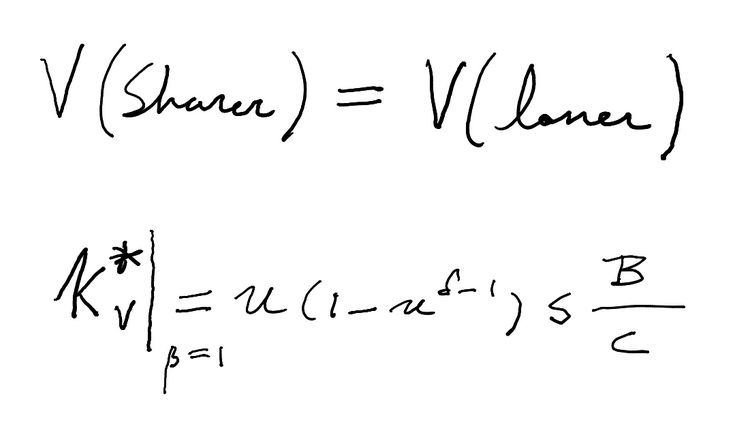 V(Sharer) = V(loner)
K*_V|_{β=1} = u(1-u^{δ-1}) s B/C